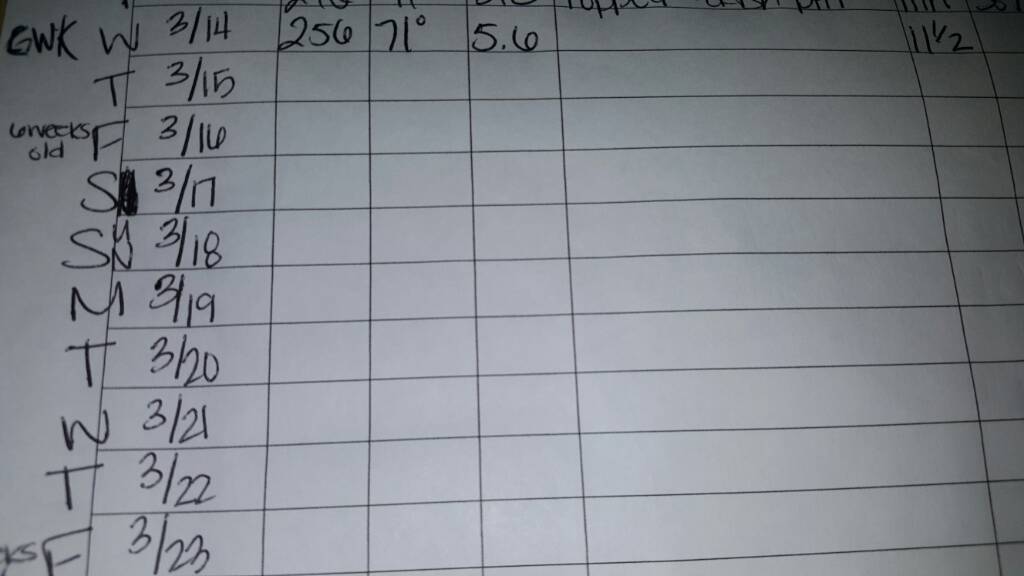 6WK W 3/14 256 71° 5.6 11 1/2
T 3/15
6weeks old F 3/16
S 3/17
S 3/18
M 3/19
T 3/20
W 3/21
T 3/22
F 3/23